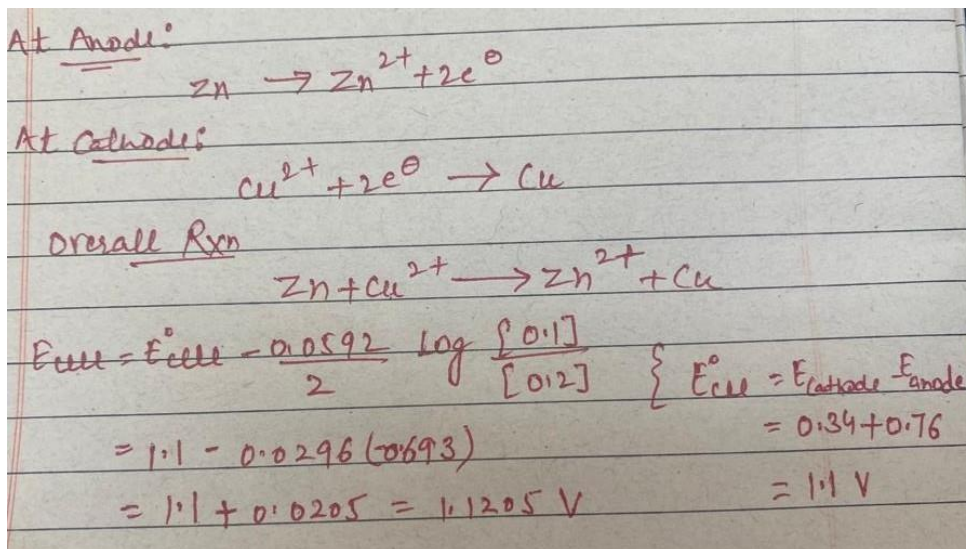 At Anode:
Zn → Zn²⁺ + 2e⊖
At Cathode:
Cu²⁺ + 2e⊖ → Cu
Overall Rxn
Zn + Cu²⁺ → Zn²⁺ + Cu
Ecell = E°cell - 0.0592/2 log [0.1]/[0.2] { E°cell = Ecathode - Eanode
= 1.1 - 0.0296 (-0.693) = 0.34 + 0.76
= 1.1 + 0.0205 = 1.1205 V = 1.1 V